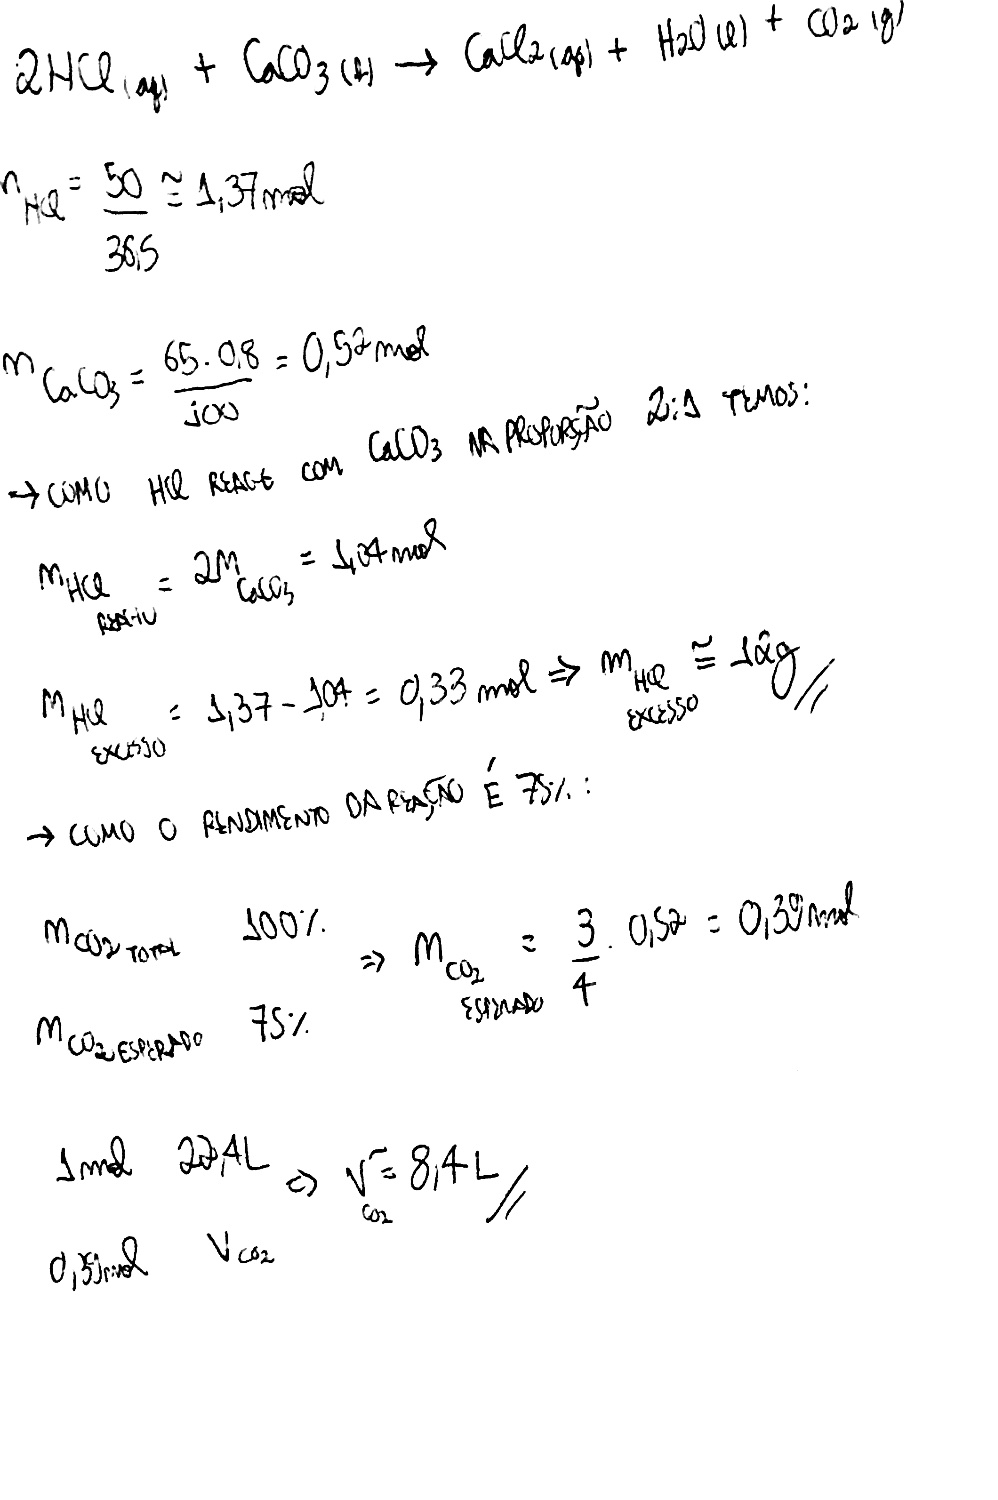 2HCl(aq) + CaCO3(s) → CaCl2(aq) + H2O(l) + CO2(g)
nHCl = 50/36,5 ≅ 1,37 mol
nCaCO3 = 65 . 0,8/100 = 0,52 mol
→ COMO HCl REAGE COM CaCO3 NA PROPORÇÃO 2:1 TEMOS:
nHCl REAGIU = 2nCaCO3 = 1,04 mol
nHCl EXCESSO = 1,37 - 1,04 = 0,33 mol ⇒ mHCl EXCESSO ≅ 12g //
→ COMO O RENDIMENTO DA REAÇÃO É 75%:
nCO2 TOTAL 100%
nCO2 ESPERADO 75% ⇒ nCO2 ESPERADO = 3/4 . 0,52 = 0,39 mol
1 mol 22,4L
0,39 mol VCO2 ⇒ VCO2 = 8,4 L //